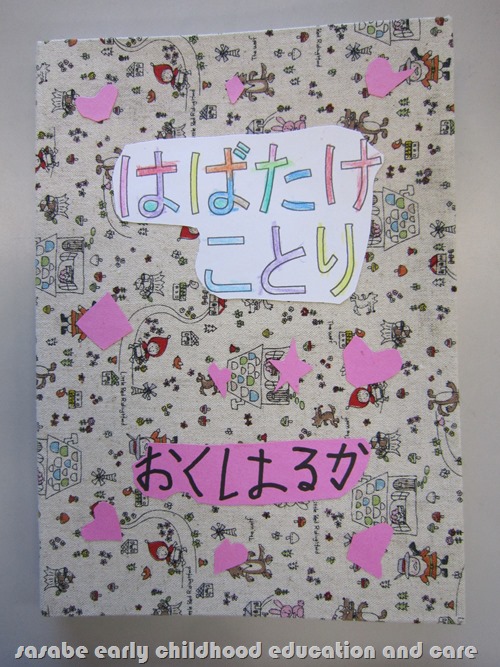 はばたけ
ことり
おくはるか
sasabe early childhood education and care